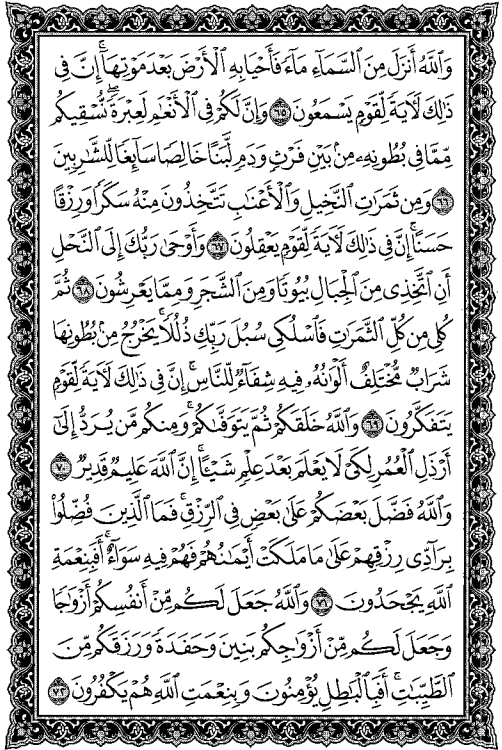 وَٱللَّهُ أَنزَلَ مِنَ ٱلسَّمَآءِ مَآءً فَأَحْيَا بِهِ ٱلْأَرْضَ بَعْدَ مَوْتِهَآۚ إِنَّ فِى
ذَٰلِكَ لَءَايَةً لِّقَوْمٍ يَسْمَعُونَ ٦٥ وَإِنَّ لَكُمْ فِى ٱلْأَنْعَٰمِ لَعِبْرَةًۖ نُّسْقِيكُم
مِّمَّا فِى بُطُونِهِۦ مِنۢ بَيْنِ فَرْثٍ وَدَمٍ لَّبَنًا خَالِصًا سَآئِغًا لِّلشَّٰرِبِينَ
٦٦ وَمِن ثَمَرَٰتِ ٱلنَّخِيلِ وَٱلْأَعْنَٰبِ تَتَّخِذُونَ مِنْهُ سَكَرًا وَرِزْقًا
حَسَنًاۗ إِنَّ فِى ذَٰلِكَ لَءَايَةً لِّقَوْمٍ يَعْقِلُونَ ٦٧ وَأَوْحَىٰ رَبُّكَ إِلَى ٱلنَّحْلِ
أَنِ ٱتَّخِذِى مِنَ ٱلْجِبَالِ بُيُوتًا وَمِنَ ٱلشَّجَرِ وَمِمَّا يَعْرِشُونَ ٦٨ ثُمَّ
كُلِى مِن كُلِّ ٱلثَّمَرَٰتِ فَٱسْلُكِى سُبُلَ رَبِّكِ ذُلُلًاۚ يَخْرُجُ مِنۢ بُطُونِهَا
شَرَابٌ مُّخْتَلِفٌ أَلْوَٰنُهُۥ فِيهِ شِفَآءٌ لِّلنَّاسِۗ إِنَّ فِى ذَٰلِكَ لَءَايَةً لِّقَوْمٍ
يَتَفَكَّرُونَ ٦٩ وَٱللَّهُ خَلَقَكُمْ ثُمَّ يَتَوَفَّىٰكُمْۚ وَمِنكُم مَّن يُرَدُّ إِلَىٰٓ
أَرْذَلِ ٱلْعُمُرِ لِكَىْ لَا يَعْلَمَ بَعْدَ عِلْمٍ شَيْـًٔاۚ إِنَّ ٱللَّهَ عَلِيمٌ قَدِيرٌ ٧٠
وَٱللَّهُ فَضَّلَ بَعْضَكُمْ عَلَىٰ بَعْضٍ فِى ٱلرِّزْقِۚ فَمَا ٱلَّذِينَ فُضِّلُوا۟
بِرَآدِّى رِزْقِهِمْ عَلَىٰ مَا مَلَكَتْ أَيْمَٰنُهُمْ فَهُمْ فِيهِ سَوَآءٌۚ أَفَبِنِعْمَةِ
ٱللَّهِ يَجْحَدُونَ ٧١ وَٱللَّهُ جَعَلَ لَكُم مِّنْ أَنفُسِكُمْ أَزْوَٰجًا
وَجَعَلَ لَكُم مِّنْ أَزْوَٰجِكُم بَنِينَ وَحَفَدَةً وَرَزَقَكُم مِّنَ
ٱلطَّيِّبَٰتِۚ أَفَبِٱلْبَٰطِلِ يُؤْمِنُونَ وَبِنِعْمَتِ ٱللَّهِ هُمْ يَكْفُرُونَ ٧٢